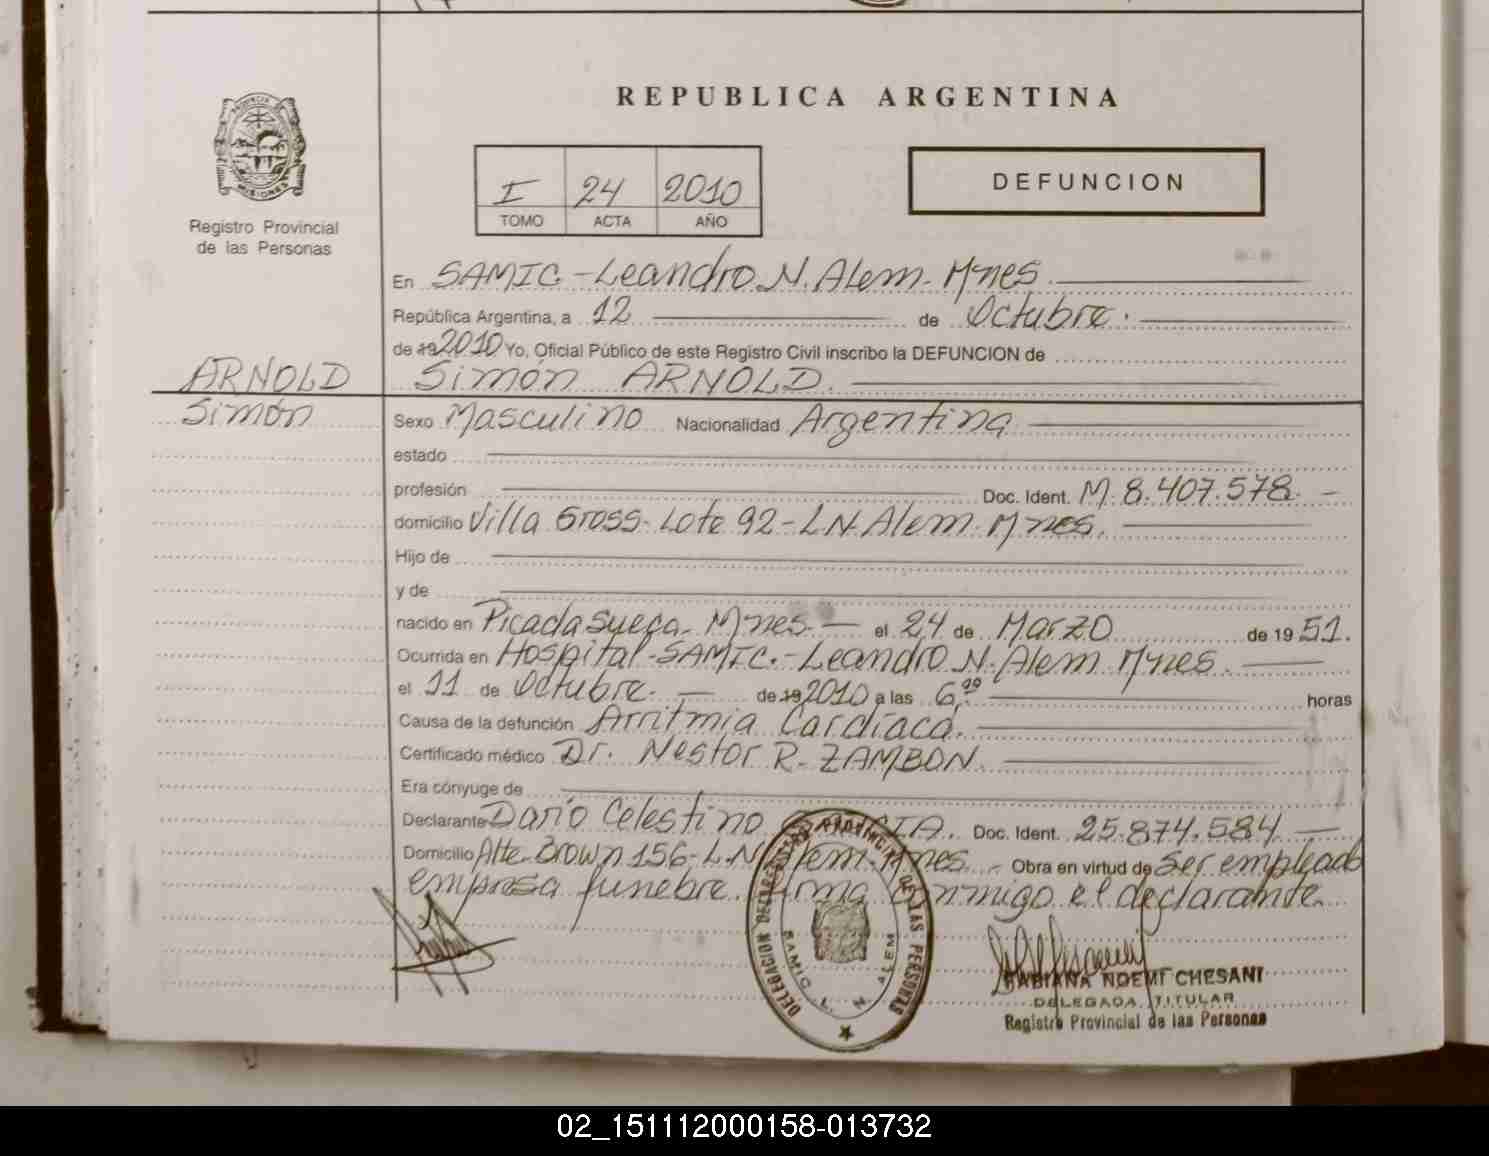 REPUBLICA ARGENTINA
I 24 2010
TOMO ACTA AÑO
DEFUNCION
Registro Provincial
de las Personas
En SAMIC - Leandro N. Alem - Mnes
República Argentina, a 12 de Octubre.
de 19 2010 Yo, Oficial Público de este Registro Civil inscribo la DEFUNCION de
ARNOLD
Simón
Simón ARNOLD.
Sexo Masculino Nacionalidad Argentina
estado
profesión Doc. Ident. M. 8.407.578. -
domicilio Villa Gross - Lote 92 - L.N. Alem - Mnes.
Hijo de
y de
nacido en Picada Sueca - Mnes. - el 24 de Marzo de 19 51.
Ocurrida en Hospital - SAMIC. - Leandro N. Alem Mnes.
el 11 de Octubre. - de 19 2010 a las 6,00 horas
Causa de la defunción Arritmia Cardíaca.
Certificado médico Dr. Nestor R. ZAMBON.
Era cónyuge de
Declarante Darío Celestino Doc. Ident. 25.874.584 -
Domicilio Alte. Brown 156 - L.N. Alem - Mnes. - Obra en virtud de ser empleado
empresa funebre. Firma conmigo el declarante.
PROVINCIAL DE LAS PERSONAS
DELEGACION
SAMIC L. N. ALEM
FABIANA NOEMI CHESANI
DELEGADA TITULAR
Registro Provincial de las Personas
02_151112000158-013732